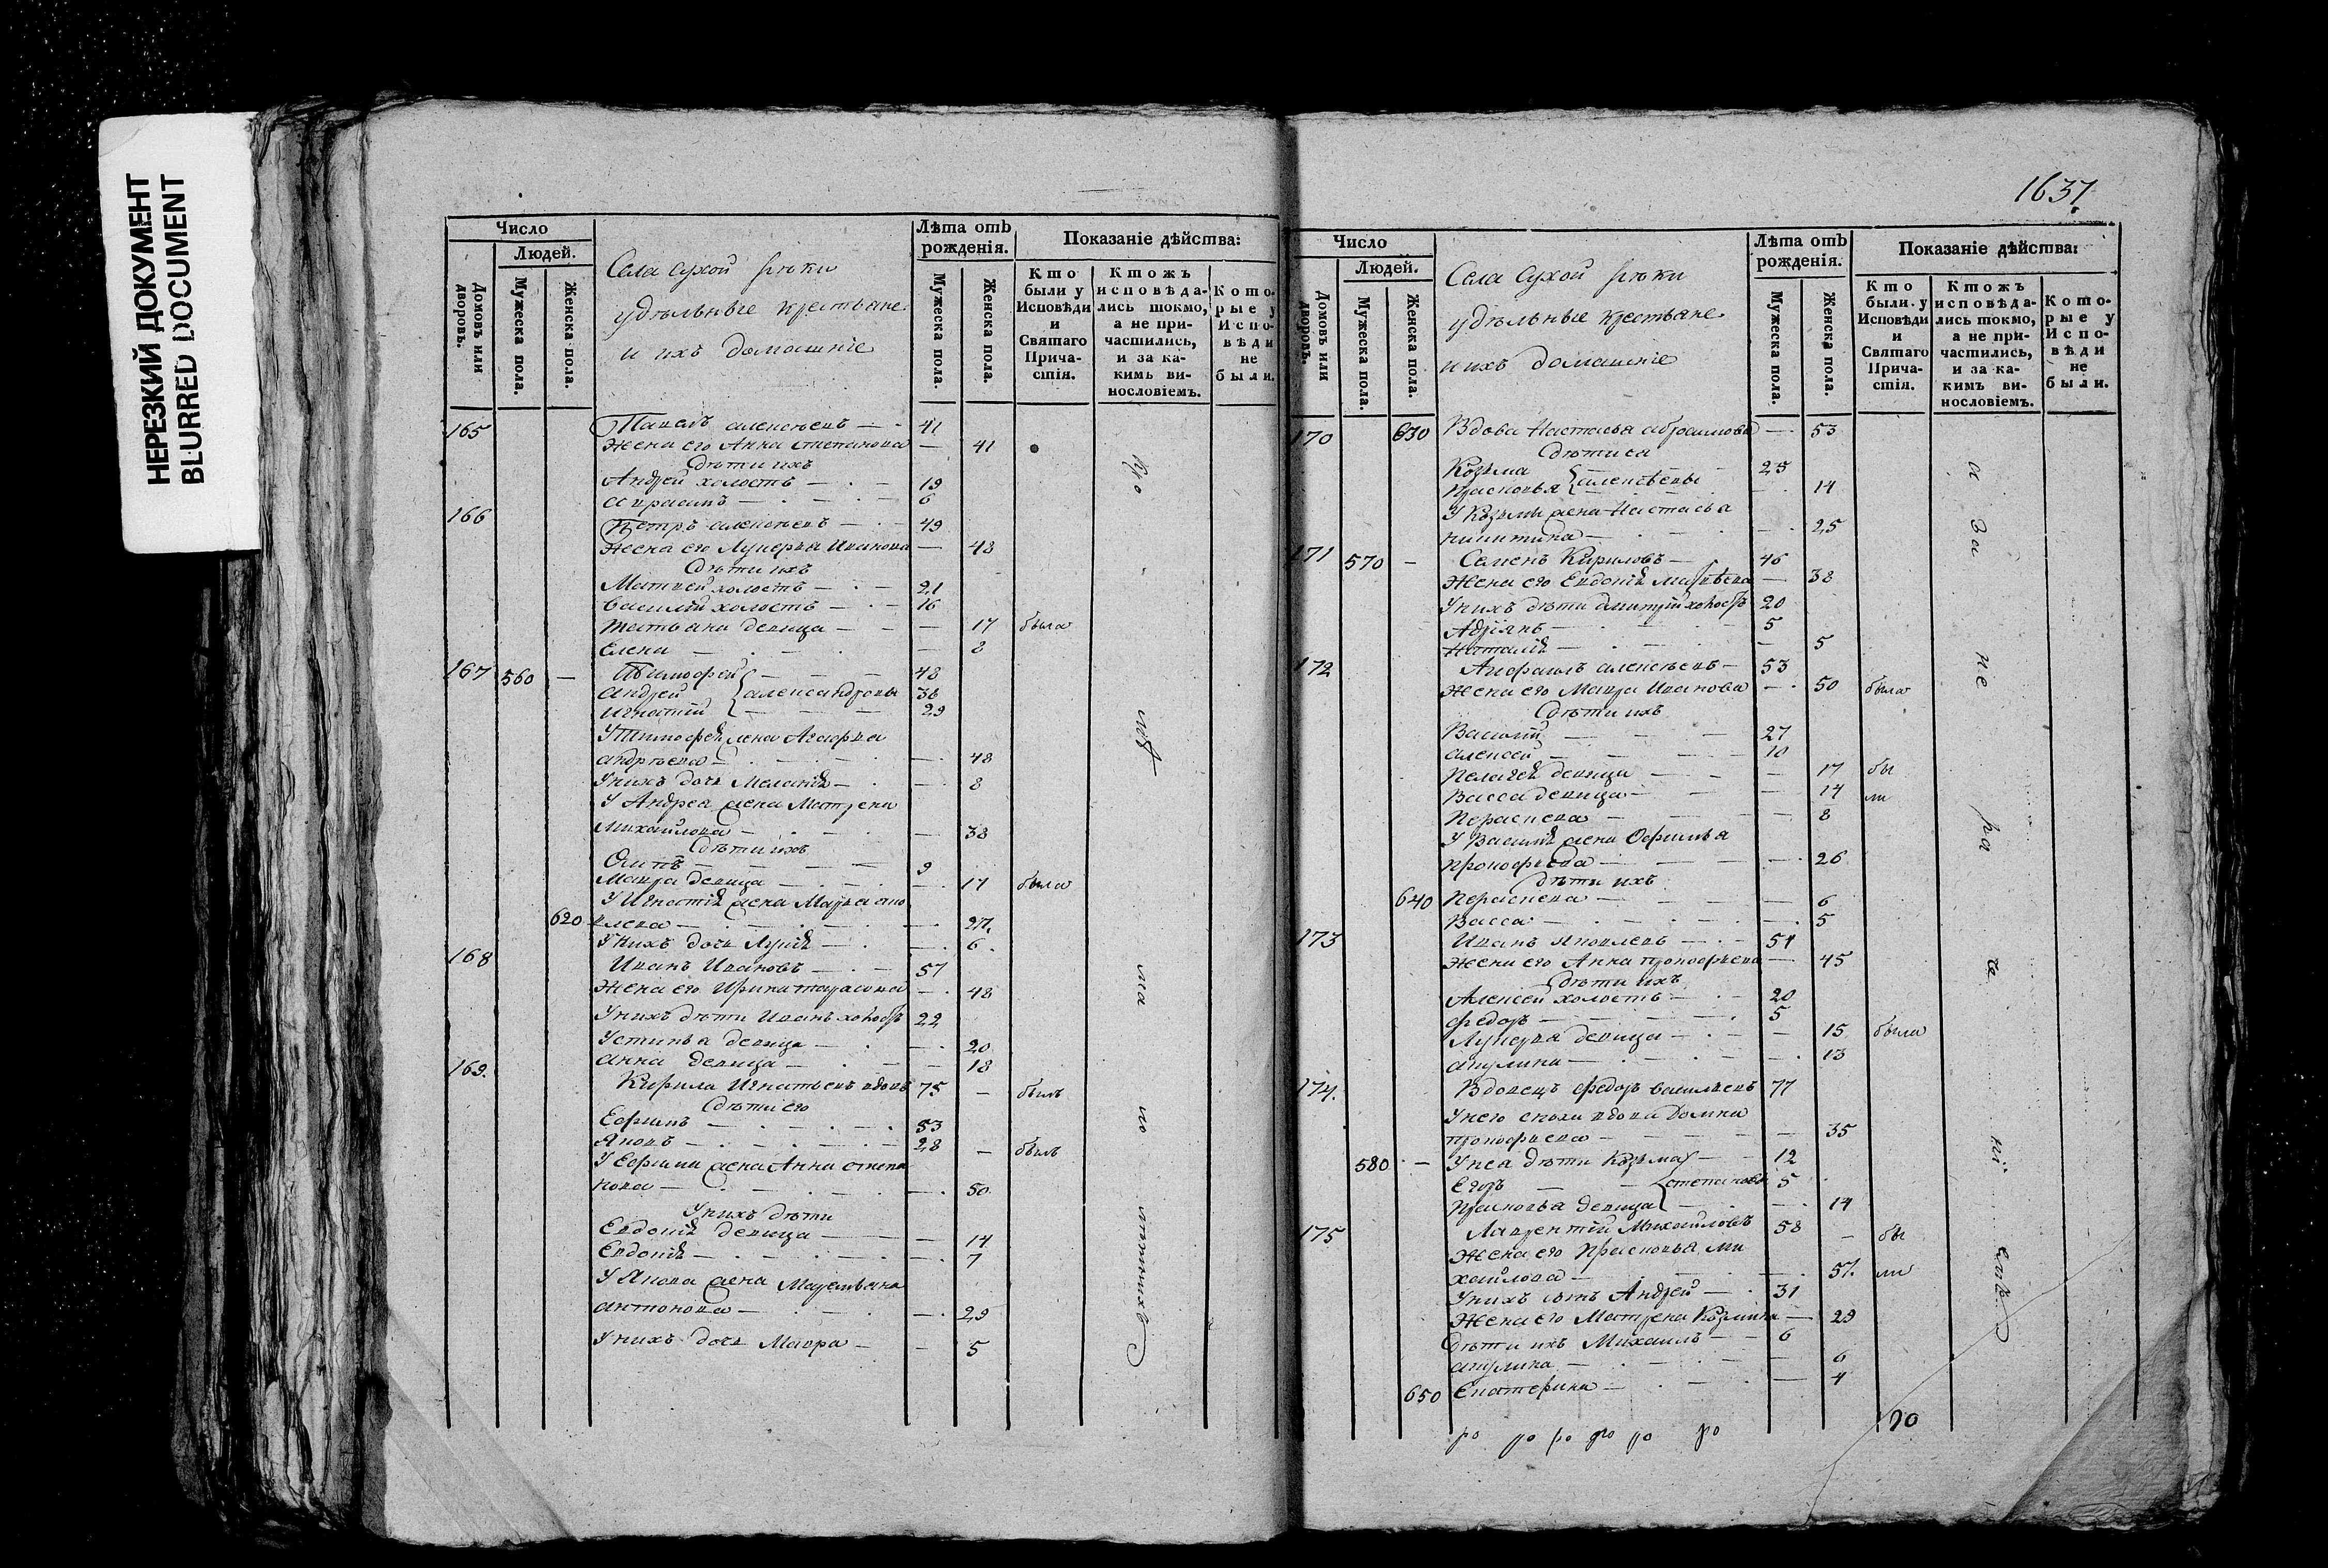 НЕРЕЗКИЙ ДОКУМЕНТ
BLURRED DOCUMENT
1637
Число
Людей.
Домовъ или дворовъ.
Мужеска пола.
Женска пола.
Села Сухой рѣки
удѣльные крестьяне
и ихъ домашніе
Лѣта отъ рожденія.
Мужеска пола.
Женска пола.
Показаніе дѣйства:
Кто были у Исповѣди и Святаго Причастія.
Ктожъ исповѣдались токмо, а не причастились, и за какимъ винословіемъ.
Которые у Исповѣди не были.
165 Павелъ алексѣевъ — 41
Жена его Анна степанова — 41
Дѣти ихъ
Андрей холостъ — 19
6
166 Петръ алексѣевъ — 49
Жена его Лукерья Иванова — 48
Дѣти ихъ
Матвей холостъ — 21
василій холостъ — 16
татьяна девица — 17 была
Елена — 8
167 560 — Тимофей — 48
андрей александровы 36
игнатій — 29
У Тимофея жена Агафья
андрѣева — 48
У нихъ дочь Меланія — 8
У Андрея жена Матрена
михайлова — 38
Дѣти ихъ
Осипъ — 9
Мавра девица — 17 была
У Игнатія жена Марья яко
620 влева — 27.
У нихъ дочь — 6.
168 Иванъ Ивановъ — 57
Жена его Ирина тарасова — 48
У нихъ дѣти Иванъ холостъ 22
Устинья девица — 20
анна девица — 18
169. Кирила Игнатьевъ вдовъ 75 — былъ
Дѣти его
Ефимъ — 53
Яковъ — 28 — былъ
У Ефима жена Анна степа
нова — 50
У нихъ дѣти
Евдокія девица — 14
Евдокія — 7
У Якова жена
антонова — 29
У нихъ дочь Мавра — 5
Число
Людей.
Домовъ или дворовъ.
Мужеска пола.
Женска пола.
Села Сухой рѣки
удѣльные крестьяне
и ихъ домашніе
Лѣта отъ рожденія.
Мужеска пола.
Женска пола.
Показаніе дѣйства:
Кто были у Исповѣди и Святаго Причастія.
Ктожъ исповѣдались токмо, а не причастились, и за какимъ винословіемъ.
Которые у Исповѣди не были.
170 630 Вдова Настасья абрамова — 53
Дѣти ея
Козьма 25
Прасковья алексѣевы 14
У Козьмы жена Настасья
никитина — 25
171 570 — Семенъ Кириловъ — 46
Жена его Евдокія Матвѣева — 38
У нихъ дѣти дмитрій холостъ 20
Адріянъ — 5
Наталія — 5
172 алексѣевъ — 53
Жена его Мавра Иванова — 50 была
Дѣти ихъ
Василій — 27
алексей — 10
Пелагея девица — 17 бы
Васса девица — 14 ли
Параскева — 8
У Василія жена Офимья
прокофьева — 26
Дѣти ихъ
640 Параскева — 6
Васса — 5
173 Иванъ Яковлевъ — 54
Жена его Анна прокофьева — 45
Дѣти ихъ
Алексей холостъ — 20
федоръ — 5
Лукерья девица — 15 была
акулина — 13
174. Вдовецъ федоръ васильевъ 77
У него сноха вдова Домна
прокофьева — 35
580 — У нея дѣти Козьма — 12
Егоръ — степановы 5
Прасковья девица — 14
175 Лаврентій Михайловъ 58 — бы
Жена его Прасковья ми
хайлова — 57. ли
У нихъ сынъ Андрей — 31
Жена его Матрена Козмина — 29
Дѣти ихъ Михаилъ — 6
акулина — 6
650 Екатерина — 4